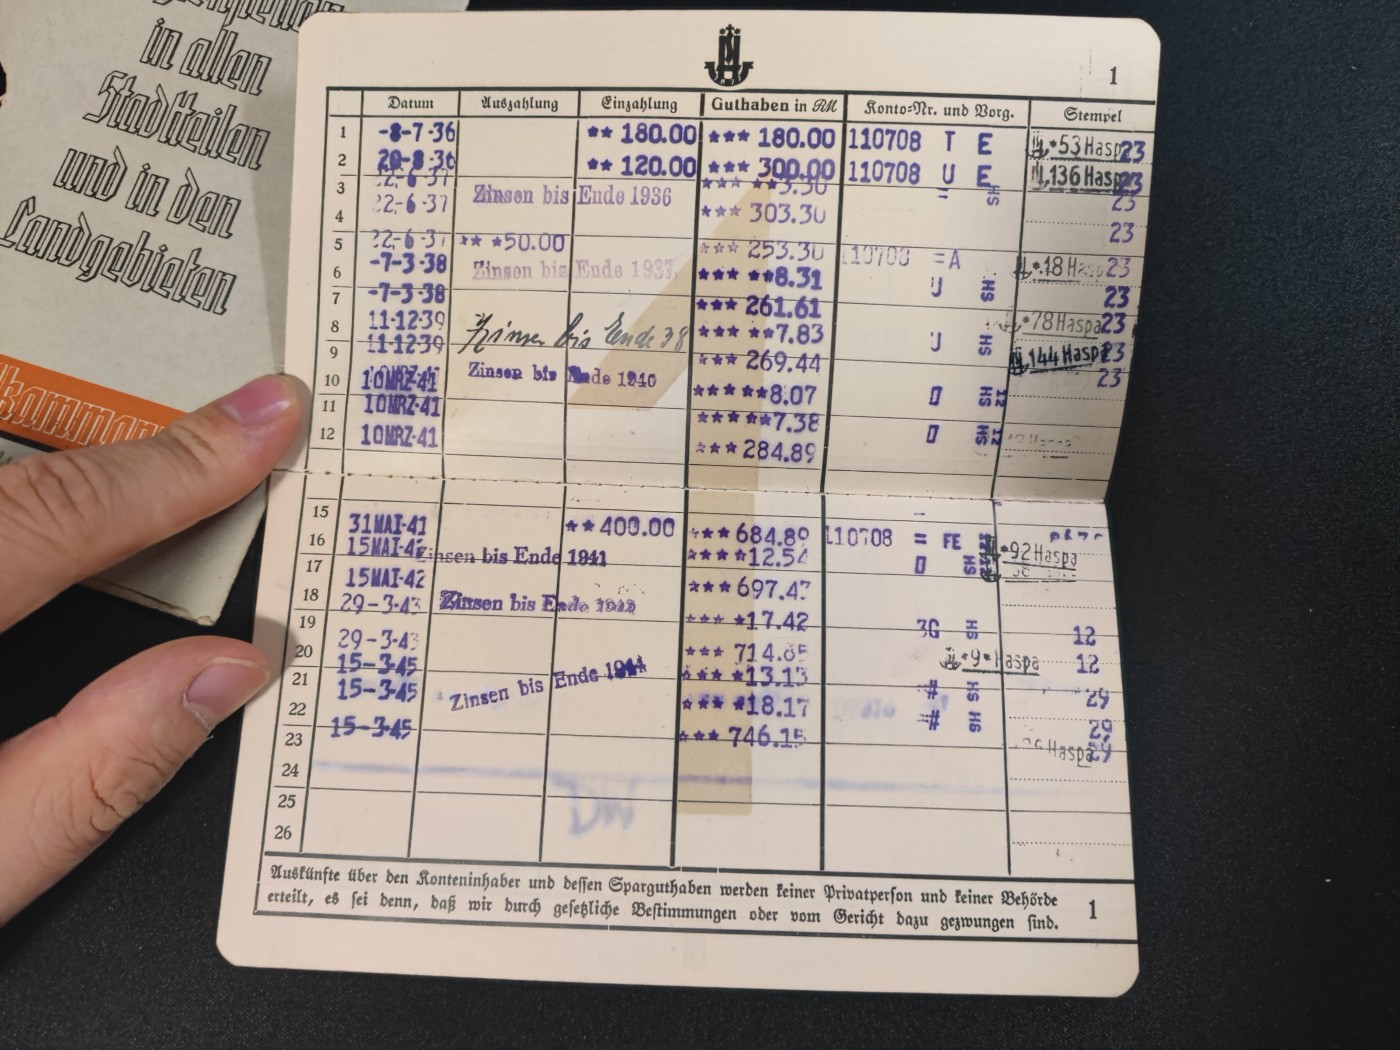 in allen
Stadtteilen
und in den
Landgebieten
1
Datum Auszahlung Einzahlung Guthaben in RM Konto-Nr. und Vorg. Stempel
1 -8-7-36 ** 180.00 *** 180.00 110708 T E *53 Haspa 23
2 20-8-36 ** 120.00 *** 300.00 110708 U E 136 Haspa 23
3 22-6-37 Zinsen bis Ende 1936 *** **3.30 = HS 23
4 22-6-37 *** 303.30 23
5 22-6-37 ** *50.00 *** 253.30 110708 =A *18 Haspa 23
6 -7-3-38 Zinsen bis Ende 1937 *** **8.31 U HS 23
7 -7-3-38 *** 261.61 *78 Haspa 23
8 11-12-39 Zinsen bis Ende 38 *** **7.83 U HS 144 Haspa 23
9 11-12-39 *** 269.44 23
10 10MRZ-41 Zinsen bis Ende 1940 *** **8.07 0 HS 12
11 10MRZ-41 *** **7.38 0 HS 12
12 10MRZ-41 *** 284.89 Haspa
15 31MAI-41 ** 400.00 *** 684.89 110708 = FE *92 Haspa
16 15MAI-42 Zinsen bis Ende 1941 *** *12.54 0 HS 12
17 15MAI-42 *** 697.43
18 29-3-43 Zinsen bis Ende 1942 *** *17.42 3G HS 12
19 29-3-43 *** 714.85 *9* Haspa 12
20 15-3-45 *** *13.13 # HS 29
21 15-3-45 Zinsen bis Ende 1944 *** *18.17 # HG 29
22 15-3-45 *** 746.15 Haspa 29
23
24
25 DW
26
Auskünfte über den Konteninhaber und dessen Sparguthaben werden keiner Privatperson und keiner Behörde
erteilt, es sei denn, daß wir durch gesetzliche Bestimmungen oder vom Gericht dazu gezwungen sind.
1